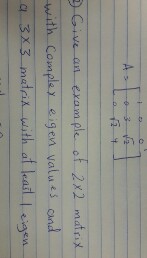 A = [ 1 0 0
0 3 √2
0 √2 4 ]
2) Give an example of 2x2 matrix
with complex eigen values and
a 3x3 matrix with at least 1 eigen